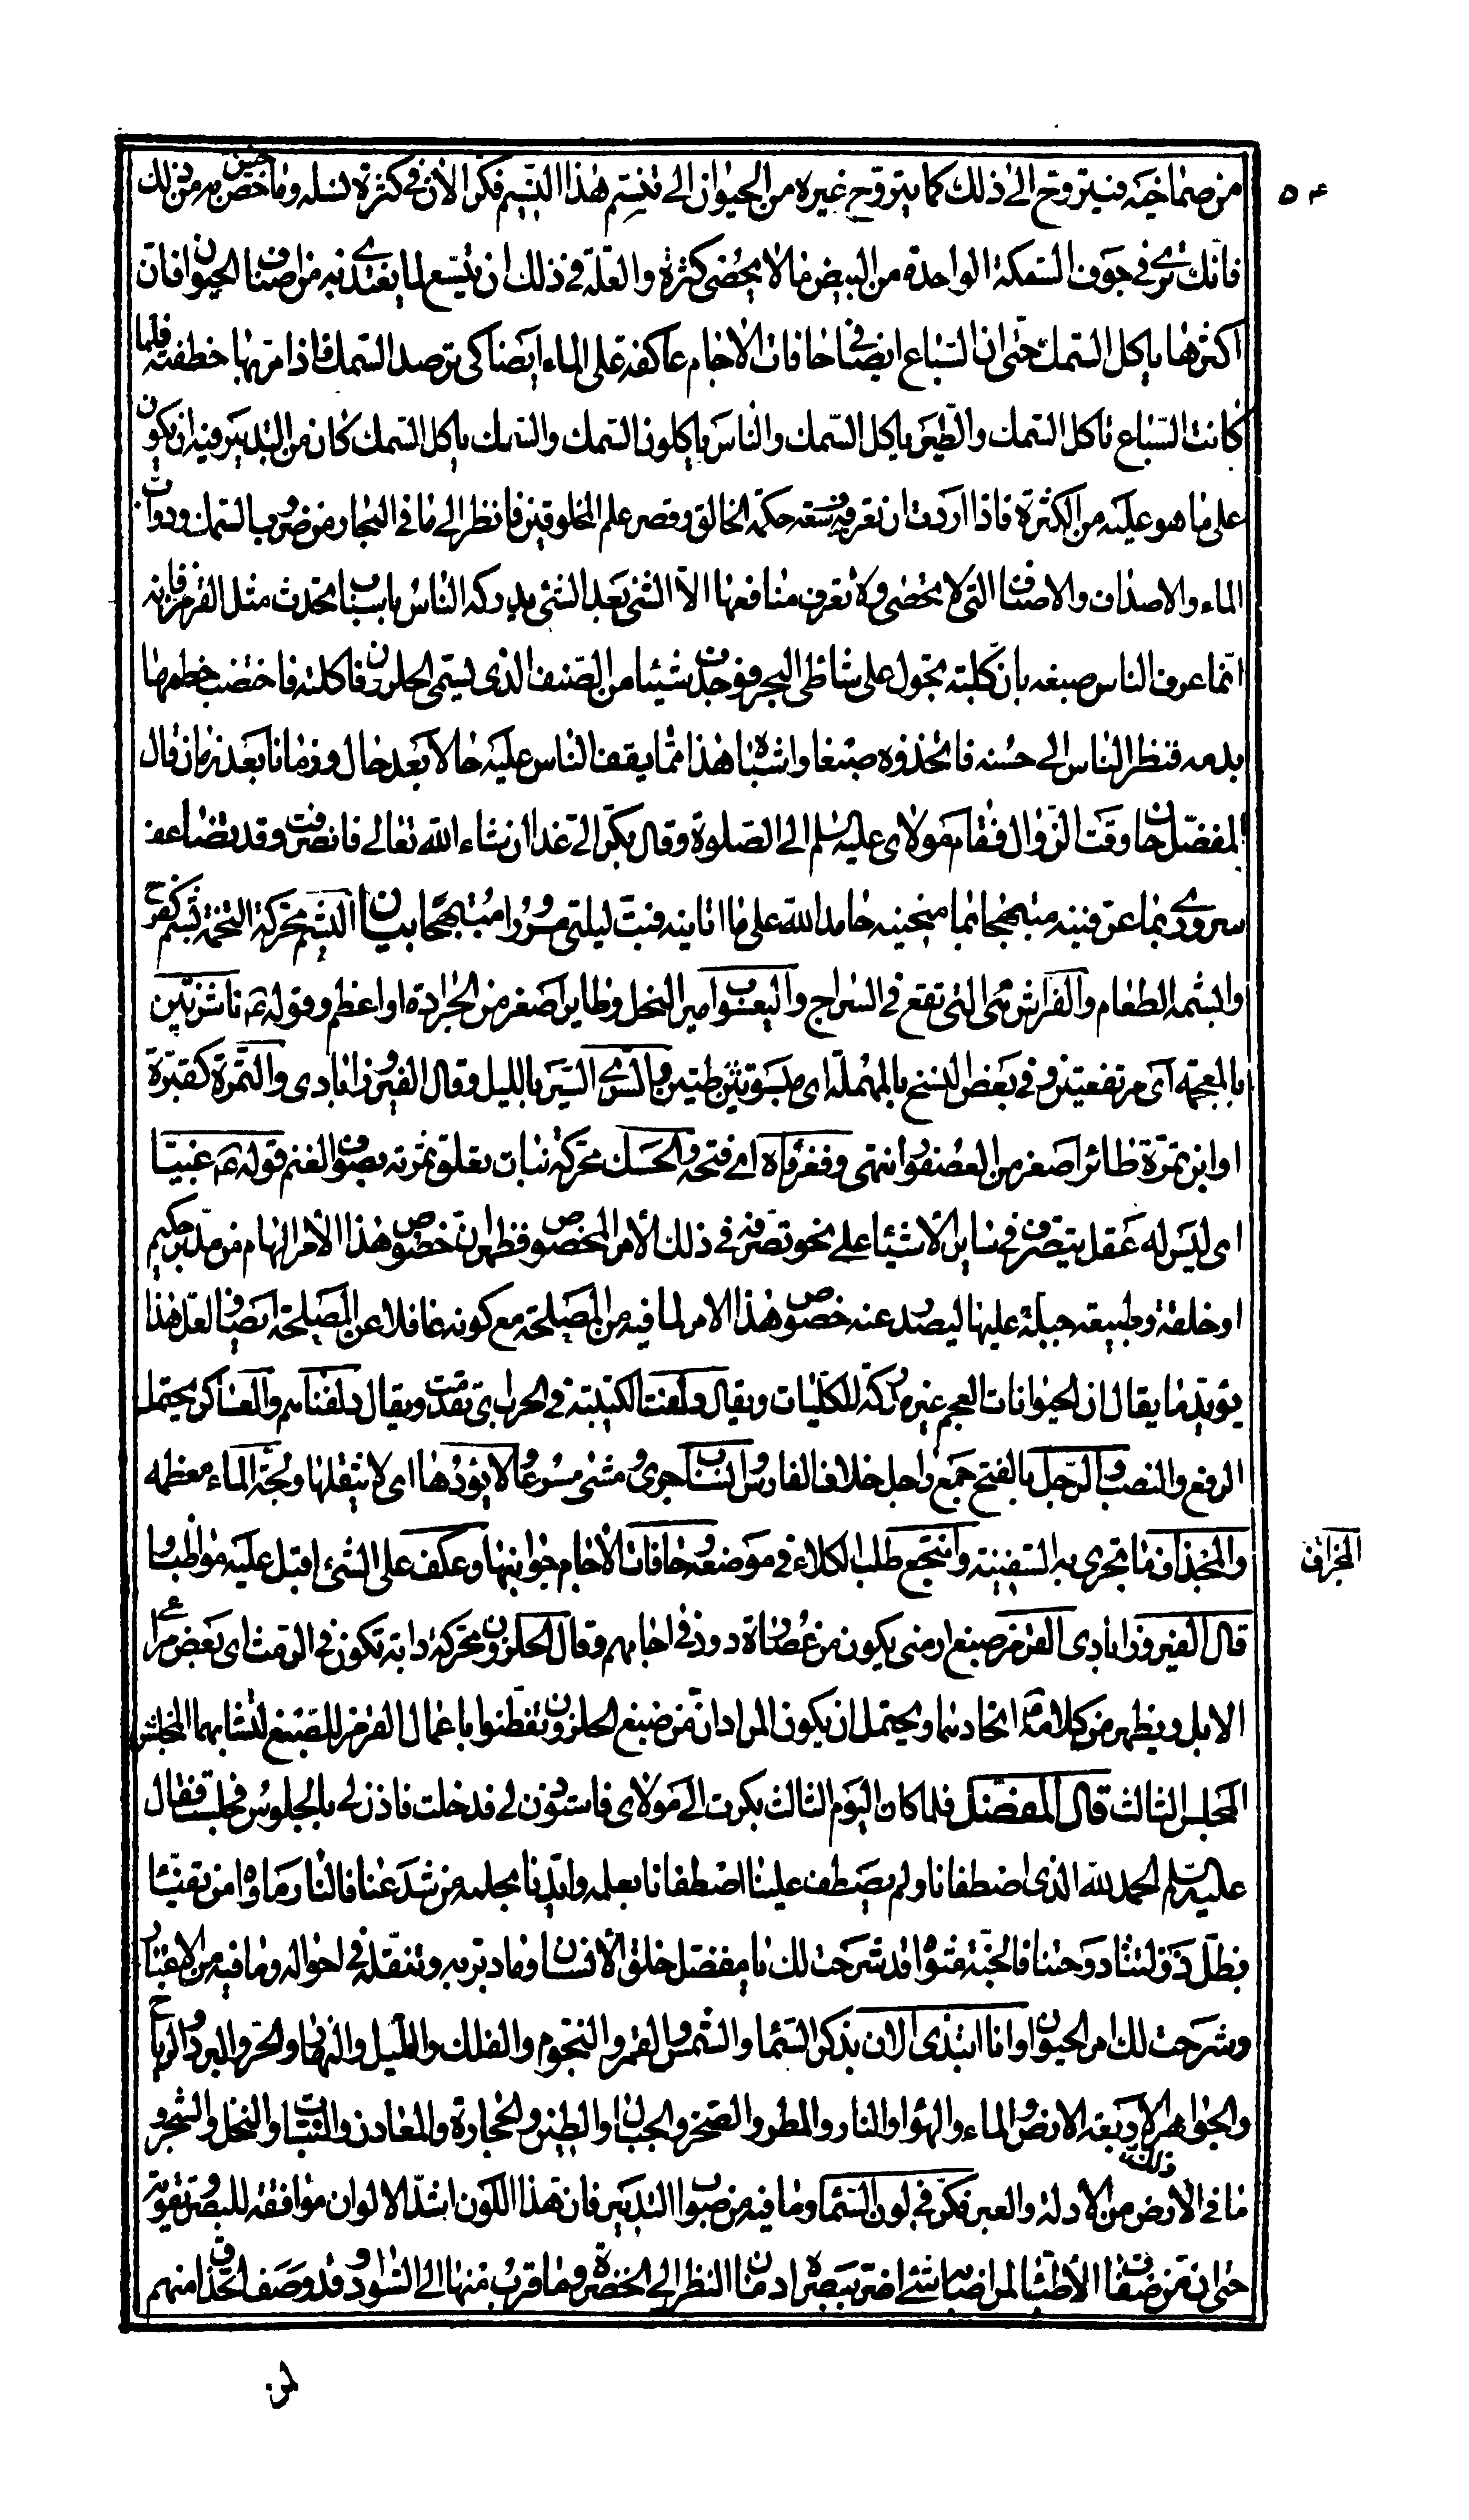 ٥٤
من صماخيه فيتروح الى ذلك كما يتروح غيره من الحيوان الى تنسم هذا النسيم فكر الآن في كثرة نسله وما خص به من ذلك
فانك ترى في جوف السمكة الواحدة من البيض ما لا يحصى كثرة والعلة في ذلك ان يتسع لما يغتذى به من اصناف الحيوان فان
اكثرها ياكل السمك حتى ان السباع ايضا في حافات الآجام عاكفة على الماء ايضا كى ترصد السمك فاذا مر بها خطفته فلما
كانت السباع تاكل السمك والطير ياكل السمك والناس ياكلون السمك والسمك ياكل السمك كان من التدبير فيه ان يكون
على ما هو عليه من الكثرة فاذا اردت ان تعرف سعة حكمة الخالق وقصر علم المخلوقين فانظر الى ما في البحار من ضروب السمك ودواب
الماء والاصداف والاصناف التى لا تحصى ولا تعرف منافعها الا الشئ بعد الشئ يدركه الناس باسباب تحدث مثل القرمز فانه
انما عرف الناس صبغه بان كلبة تجول على شاطئ البحر فوجدت شيئا من الصنف الذى يسمى الحلزون فاكلته فاختضب خطمها
بدمه فنظر الناس الى حسنه فاتخذوه صبغا واشباه هذا مما يقف الناس عليه حالا بعد حال وزمانا بعد زمان قال
المفضل حان وقت الزوال فقام مولاى عليه السلم الى الصلوة وقال بكر الى غدا ان شاء الله تعالى فانصرفت وقد تضاعف
سرورى بما عرفنيه مبتهجا بما منحنيه حامدا لله على ما اتانيه فبت ليلتى مسرورا مبتهجا بيان البشم محركة التخمة بشم كفرح
والبشمه الطعام والفراش هى التى تقع في السراج واليعسوب امير النحل وطاير اصغر من الجرادة او اعظم وقوله ع ناشزتين
بالمعجمة اى مرتفعتين وفي بعض النسخ بالمهملة اى مبسوطتين والسرى السير بالليل وقال الفيروزابادى والتمرة كقبرة
او ابن تمرة طائر اصغر من العصفور انتهى وفغر فاه اى فتحه والحسك محركة نبات تعلق ثمرته بصوف الغنم قوله ع غبيا
اى ليس له عقل يتصرف في ساير الاشياء على نحو تصرفه في ذلك الامر المخصوص فظهر ان خصوص هذا الامر الهام من مدبر حكيم
او خلقة وطبيعة جبله عليها ليصدر عنه خصوص هذا الامر لما فيه من المصلحة مع كونه غافلا عن المصلحة ايضا ولعل هذا
يؤيد ما يقال ان الحيوانات العجم غير مدركة للكليات ويقال دلفت الكتيبة في الحرب اى تقدمت ويقال دلفناهم والعساكر يحتمل
الرفع والنصب والرجل بالفتح جمع راجل خلاف الفارس وانساب جرى ومشى مسرعا ولا يؤدها اى لا يثقلها ولجة الماء معظمه
والمجذاف ما تجرى به السفينة وانتجع طلب الكلاء في موضعه وحافات الآجام جوانبها وعكف على الشئ اقبل عليه مواظبا
المجراف
قال الفيروزابادى القرمز صبغ ارمنى يكون من عصارة دود في آجامهم وقال الحلزون محركة دابة تكون في الرمث اى بعض مراعى
الابل ويظهر من كلامه ع اتحادهما ويحتمل ان يكون المراد ان من صبغ الحلزون تفطنوا باعمال القرمز للصبغ لتشابههما المجلس
المجلس الثالث قال المفضل فلما كان اليوم الثالث بكرت الى مولاى فاستوذن لى فدخلت فاذن لى بالجلوس فجلست فقال
عليه السلم الحمد لله الذى اصطفانا ولم يصطف علينا اصطفانا بعلمه وايدنا بحلمه من شذ عنا فالنار ماواه ومن تفيا
بظل دوحتنا فالجنة مثواه قد شرحت لك يا مفضل خلق الانسان وما دبر به وتنقله في احواله وما فيه من الاعتبار
وشرحت لك امر الحيوان وانا ابتدى الآن بذكر السماء والشمس والقمر والنجوم والفلك والليل والنهار والحر والبرد والرياح
والجواهر الاربعة الارض والماء والهواء والنار والمطر والصخر والجبال والطين والحجارة والمعادن والنبات والنخل والشجر و
ما في ذلك من الادلة والعبر فكر في لون السماء وما فيه من صواب التدبير فان هذا اللون اشد الالوان موافقة للبصر وتقوية
حتى ان من صفات الاطباء لمن اصابه شئ اضر ببصره ادمان النظر الى الخضرة وما قرب منها الى السواد وقد وصف الحذاق منهم